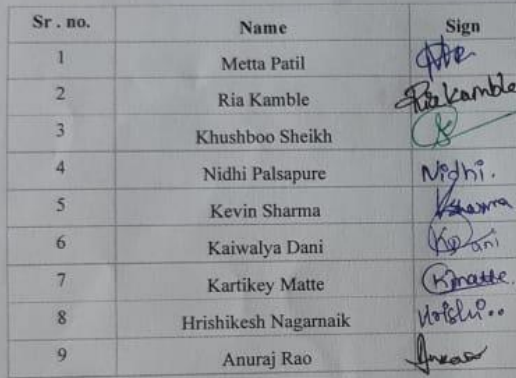 Sr . no. Name Sign
1 Metta Patil
2 Ria Kamble RiaKamble
3 Khushboo Sheikh
4 Nidhi Palsapure Nidhi.
5 Kevin Sharma Ksharma
6 Kaiwalya Dani KDani
7 Kartikey Matte Kmatte.
8 Hrishikesh Nagarnaik Hrishi..
9 Anuraj Rao